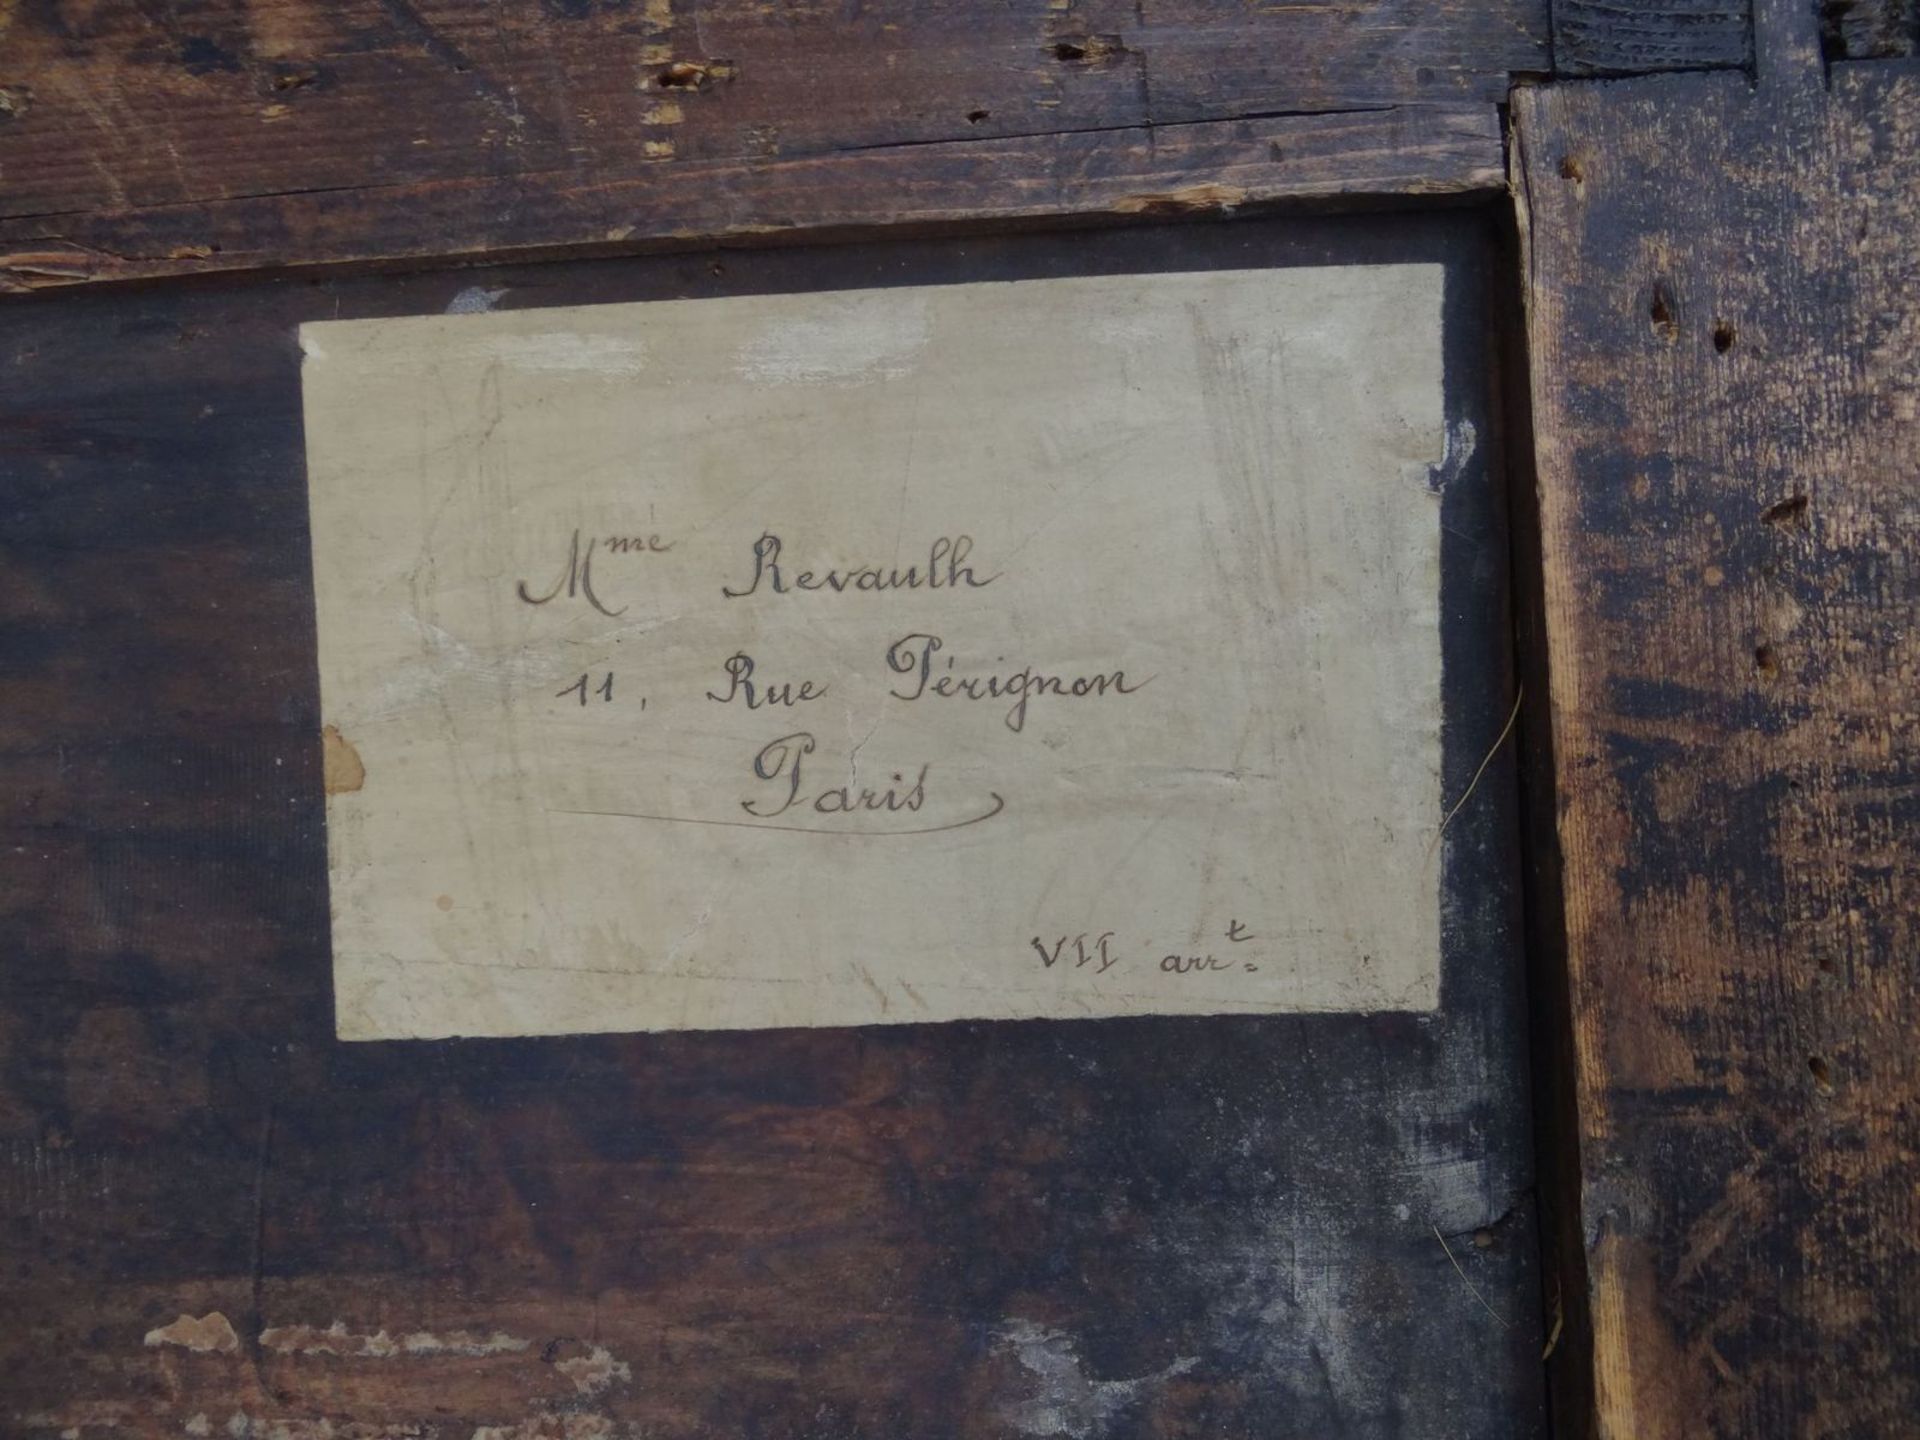 Mme Revaulh
11, Rue Pérignon
Paris
VII arrt